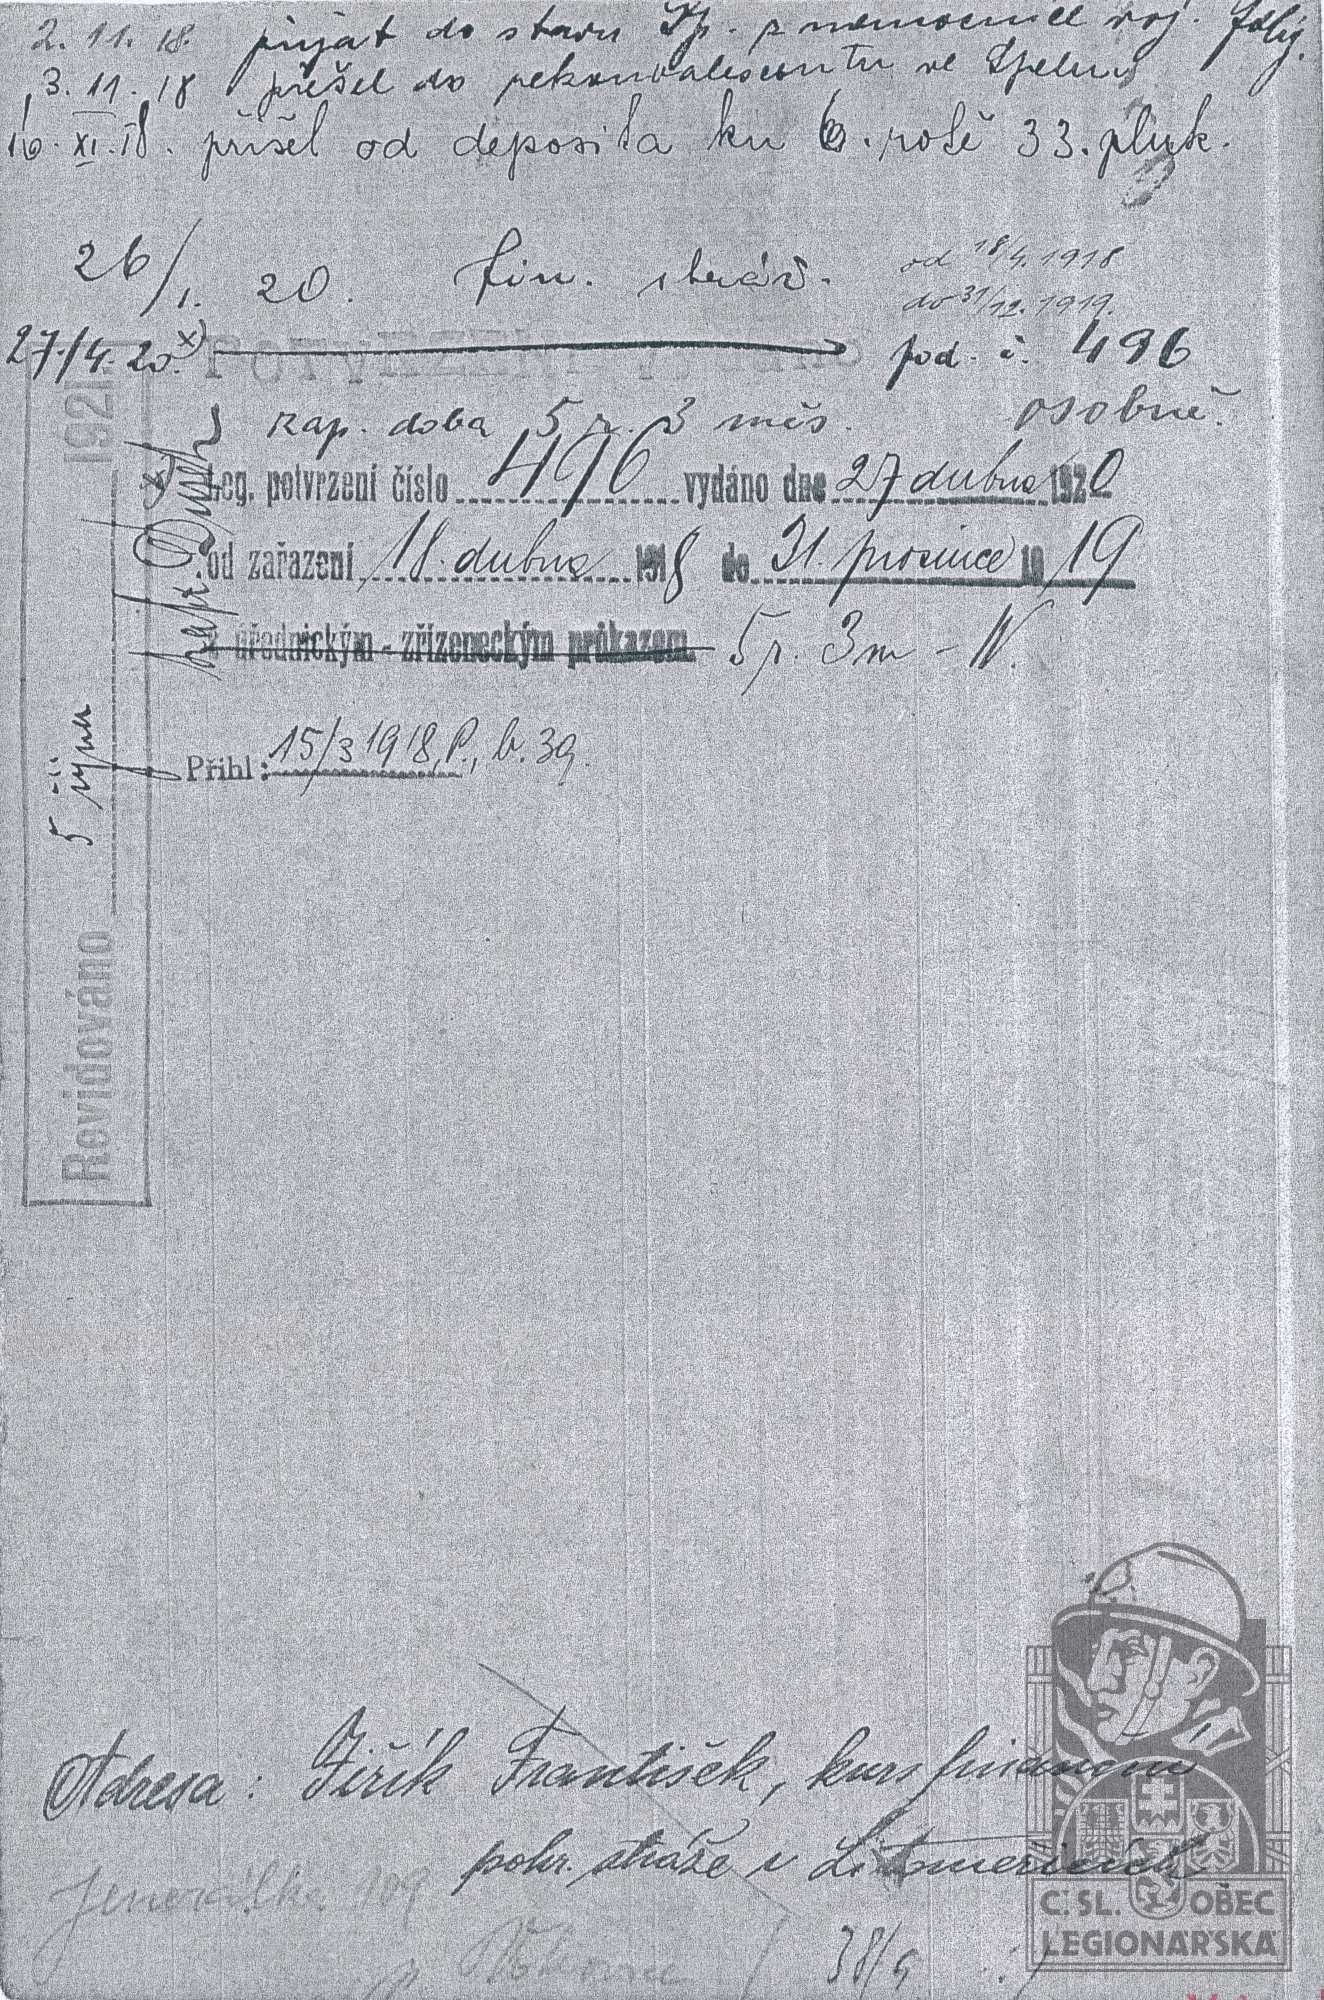 2. 11. 18. přijat do stavu z nemocnice voj. Folig.
3. 11. 18 přešel do rekonvalescentu ve
16. XI. 18. přišel od deposita ku 6. rotě 33. pluk.
26/1. 20. fin. stráž.
od 18/4. 1918
do 31/12. 1919.
27./4. 20. x) pod. č. 496
zap. doba 5 r. 3 měs. osobně.
Leg. potvrzení číslo 496 vydáno dne 27 dubna 1920
od zařazení 18. dubna 1918 do 31. prosince 1919
úřednickým - zřízeneckým průkazem. 5 r. 3 m - IV.
Přihl: 15/3 1918, P., b. 39.
Revidováno 5 října 1921
Adresa: Jiřík František, kurs finanční
pohr. stráže v Litoměřicích
Jenerálka 109
38/9
Č. SL. OBEC
LEGIONÁŘSKÁ